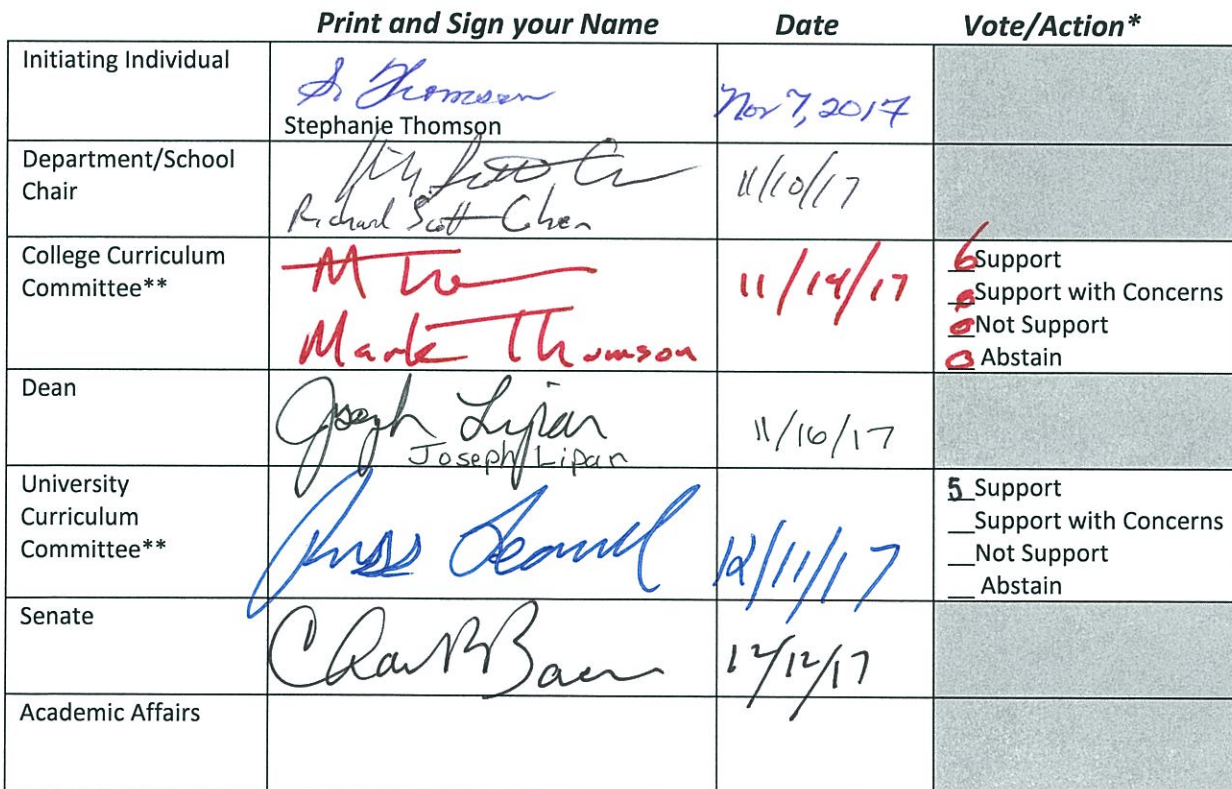 Print and Sign your Name Date Vote/Action*
Initiating Individual
S. Thomson Nov 7, 2017
Stephanie Thomson
Department/School
Chair
11/10/17
Richard Scott Chen
College Curriculum
Committee**
M Th 11/14/17
Mark Thomson
6 Support
0 Support with Concerns
0 Not Support
0 Abstain
Dean
Joseph Lipan 11/16/17
Joseph Lipan
University
Curriculum
Committee**
Russ 12/11/17
5 Support
__Support with Concerns
__Not Support
__ Abstain
Senate
12/12/17
Academic Affairs